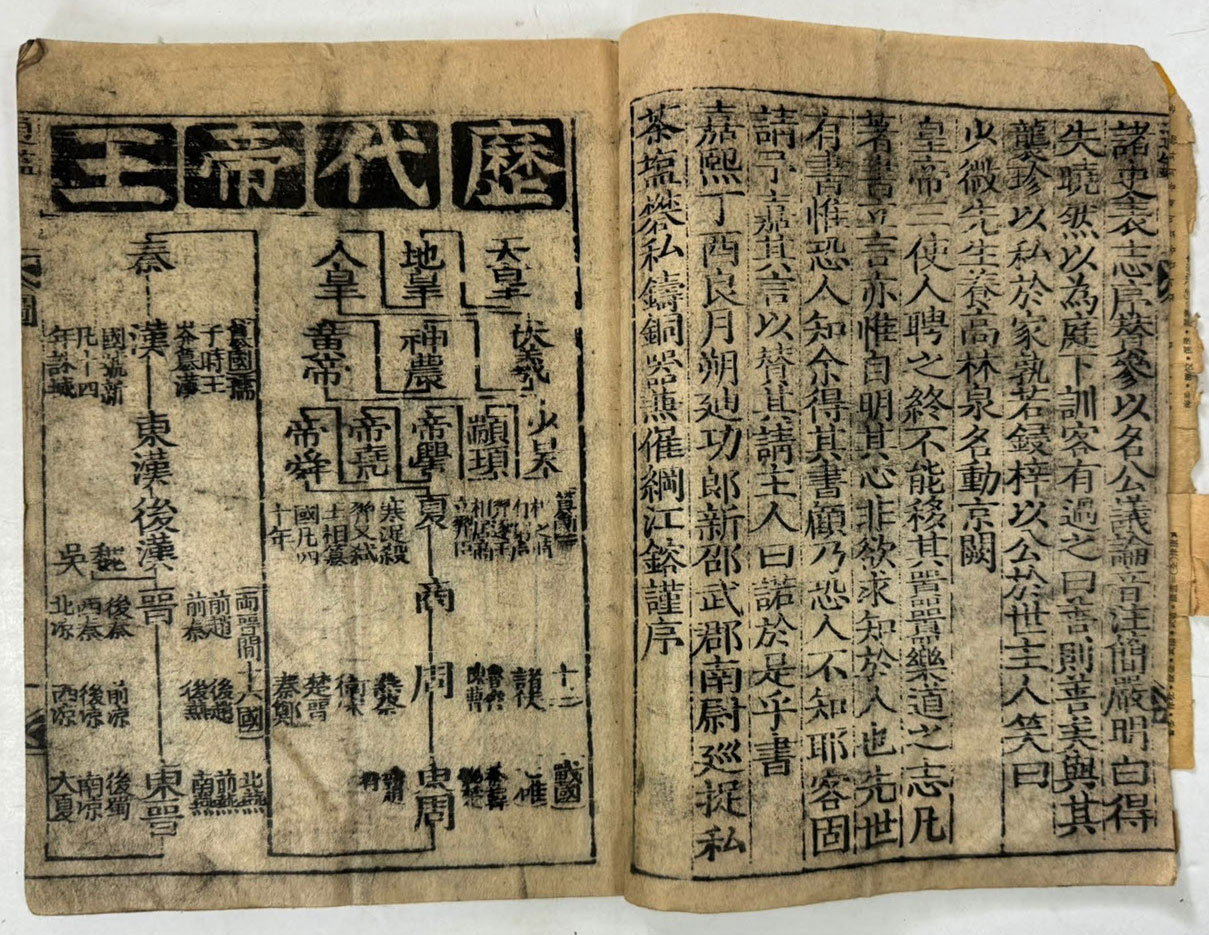 諸史表志序賛參以名公議論音注簡嚴明白得
失曉然以為庭下訓客有過之曰善則善矣與其
襲珍以私於家孰若鋟梓以公於世主人笑曰
少微先生養高林泉名動京闕
皇帝三使人聘之終不能移其囂囂樂道之志凡
著書立言亦惟自明其心非欲求知於人也先世
有書惟恐人知余得其書顧乃恐人不知耶客固
請予嘉其言以賛其請主人曰諾於是乎書
嘉熙丁酉良月朔迪功郎新邵武郡南尉巡捉私
茶塩礬私鑄銅器𠔥催綱江鎔謹序
歷代帝王
天皇
地皇
人皇
伏羲
神農
黄帝
少昊
顓頊
帝嚳
帝堯
帝舜
夏
寒浞殺
羿又弑
王相簒
國凡四
十年
商
周
十二
諸侯
秦鄭
楚晋
東周
戰國
秦
漢
簒國孺
子時王
莽簒漢
國號新
凡十四
年誅滅
東漢
後漢
魏
吳
晋
兩晋間十六國
前趙
前秦
後秦
西秦
北凉
後趙
後燕
前凉
後凉
西凉
東晋
北燕
前燕
南燕
後蜀
南凉
大夏